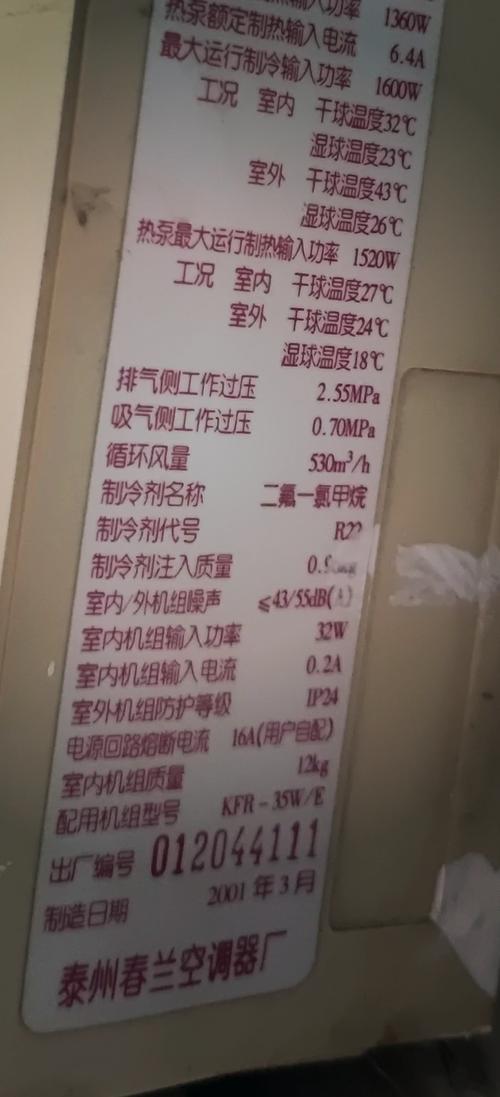 输入功率 1360W
热泵额定制热输入电流 6.4A
最大运行制冷输入功率 1600W
工况 室内 干球温度32℃
湿球温度23℃
室外 干球温度43℃
湿球温度26℃
热泵最大运行制热输入功率 1520W
工况 室内 干球温度27℃
室外 干球温度24℃
湿球温度18℃
排气侧工作过压 2.55MPa
吸气侧工作过压 0.70MPa
循环风量 530m³/h
制冷剂名称 二氟一氯甲烷
制冷剂代号
制冷剂注入质量
室内/外机组噪声 ≤43/55dB(A)
室内机组输入功率 32W
室内机组输入电流 0.2A
室外机组防护等级 IP24
电源回路熔断电流 16A(用户自配)
室内机组质量 12kg
配用机组型号 KFR-35W/E
出厂编号 012044111
制造日期 2001年3月
泰州春兰空调器厂